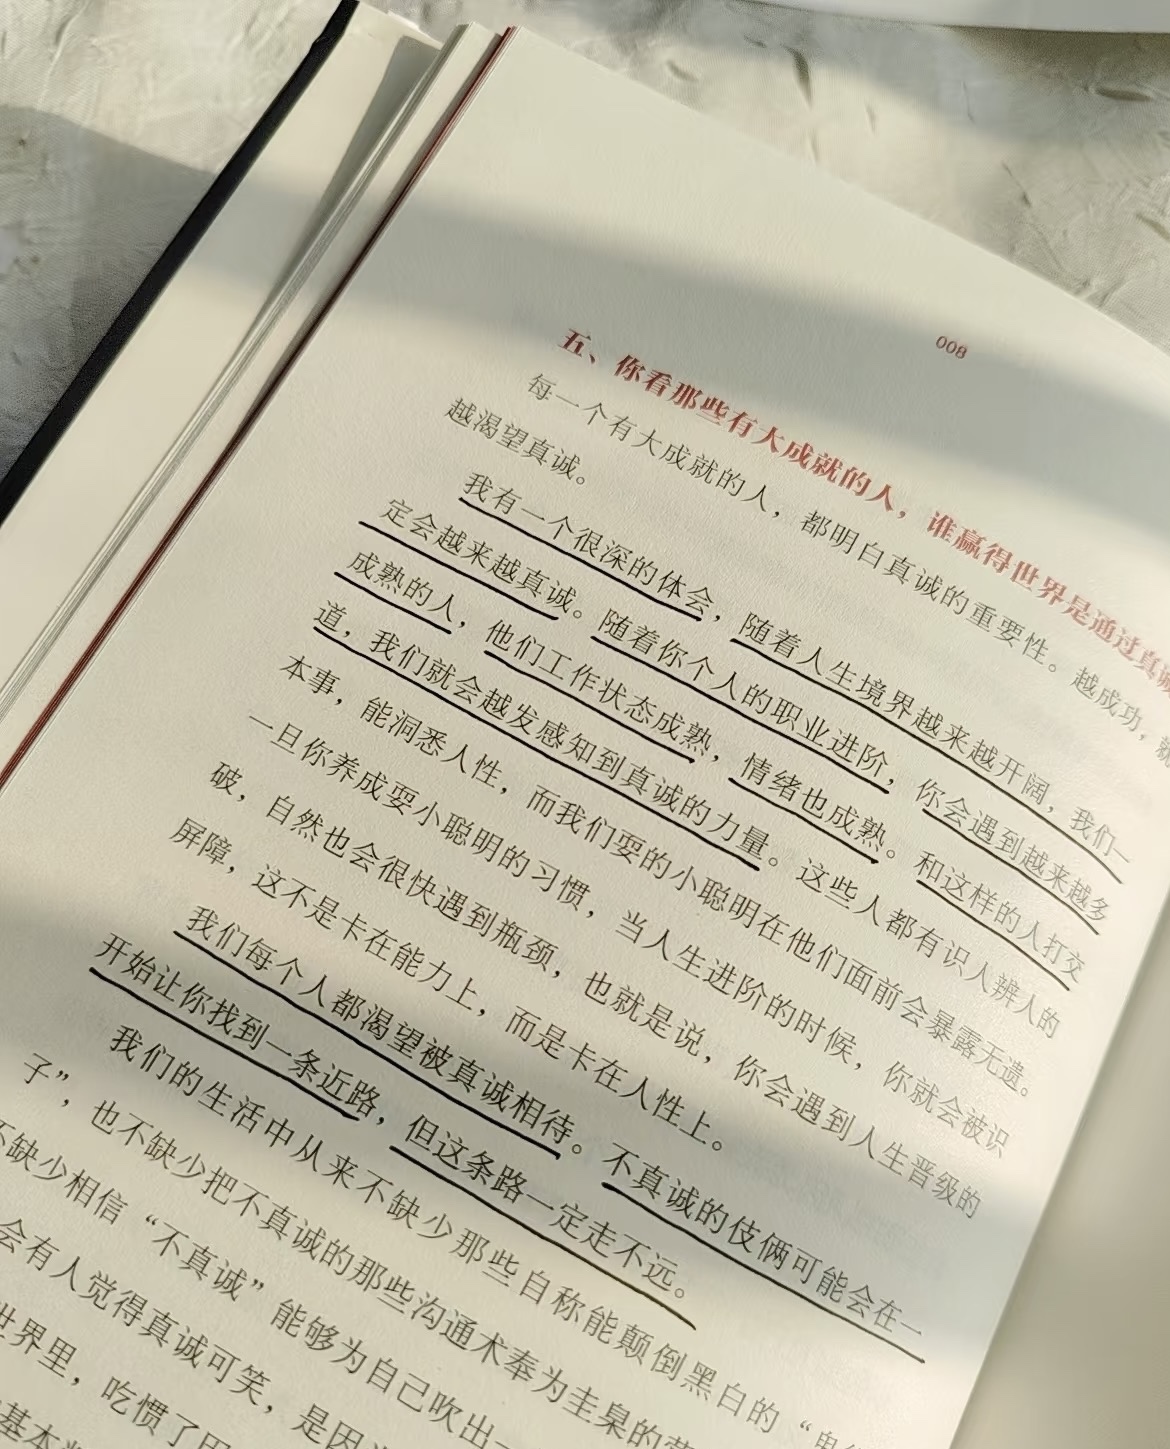 008
五、你看那些有大成就的人，谁赢得世界是通过真
每一个有大成就的人，都明白真诚的重要性。越成功，就
越渴望真诚。
我有一个很深的体会，随着人生境界越来越开阔，我们一
定会越来越真诚。随着你个人的职业进阶，你会遇到越来越多
成熟的人，他们工作状态成熟，情绪也成熟。和这样的人打交
道，我们就会越发感知到真诚的力量。这些人都有识人辨人的
本事，能洞悉人性，而我们耍的小聪明在他们面前会暴露无遗。
一旦你养成耍小聪明的习惯，当人生进阶的时候，你就会被识
破，自然也会很快遇到瓶颈，也就是说，你会遇到人生晋级的
屏障，这不是卡在能力上，而是卡在人性上。
我们每个人都渴望被真诚相待。不真诚的伎俩可能会在一
开始让你找到一条近路，但这条路一定走不远。
我们的生活中从来不缺少那些自称能颠倒黑白的“
子”，也不缺少把不真诚的那些沟通术奉为圭臬的
不缺少相信“不真诚”能够为自己吹出一
会有人觉得真诚可笑，是因
世界里，吃惯了
基本